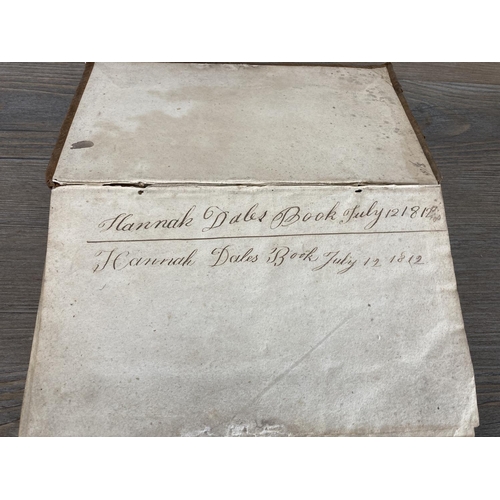 Hannah Dales Book July 12 1812
Hannah Dales Book July 12 1812